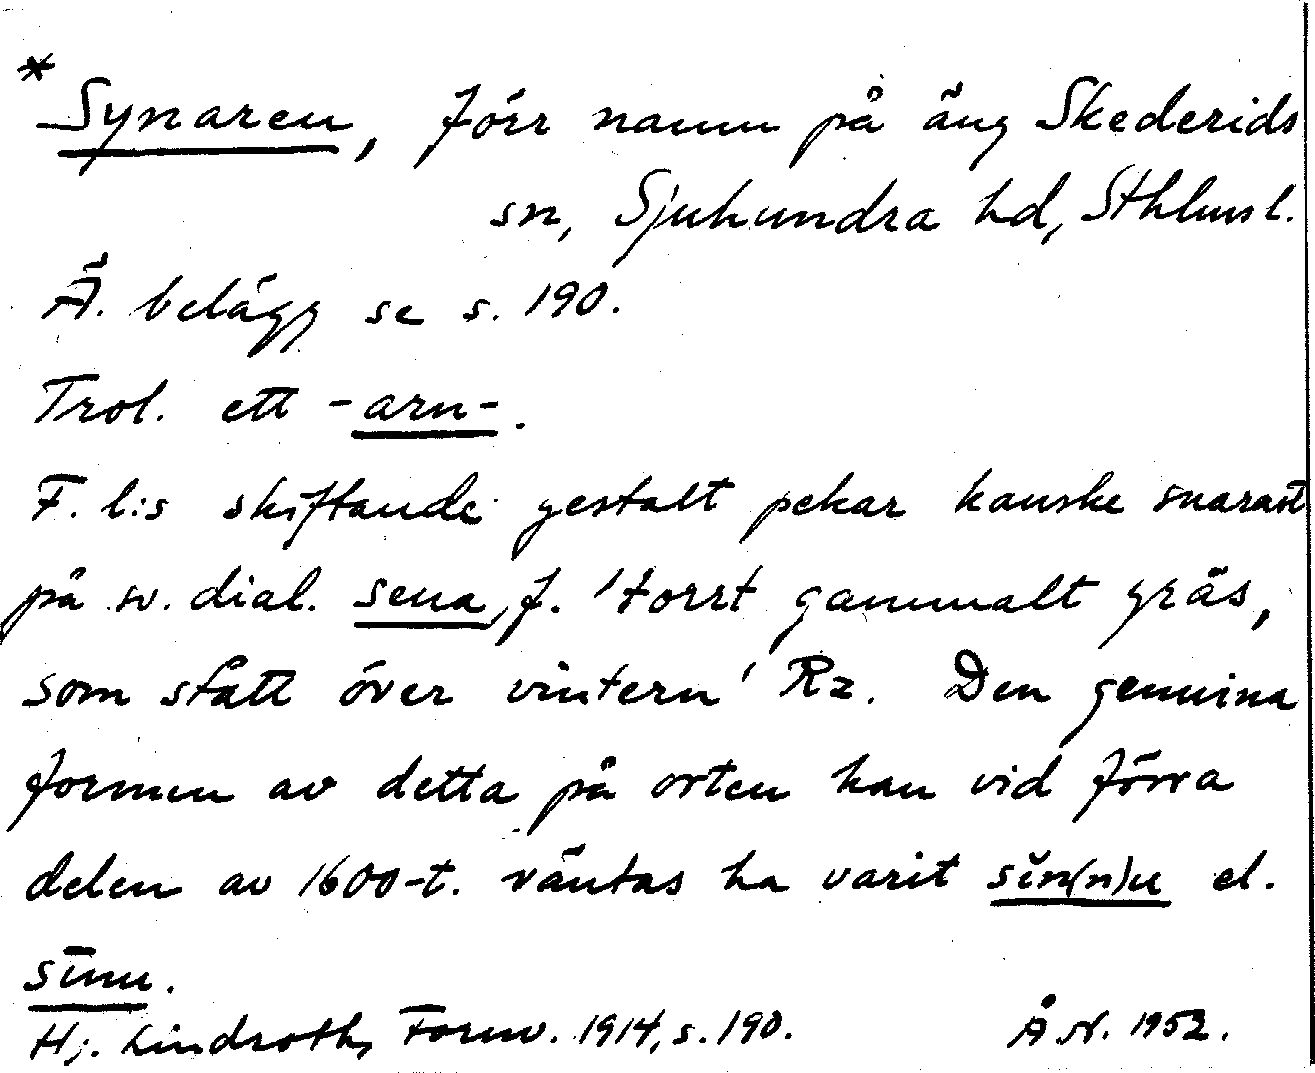 *Synaren, förr namn på äng Skederids
sn, Sjuhundra hd, Sthlms l.
Ä. belägg se s. 190.
Trol. ett -arn-.
F. l:s skiftande gestalt pekar kanske snarast
på sv. dial. sena, f. 'torrt gammalt gräs,
som stått över vintern' Rz. Den genuina
formen av detta på orten kan vid förra
delen av 1600-t. väntas ha varit sĭn(n)u el.
sīnu.
Hj. Lindroth, Fornv. 1914, s. 190. Å N. 1952.